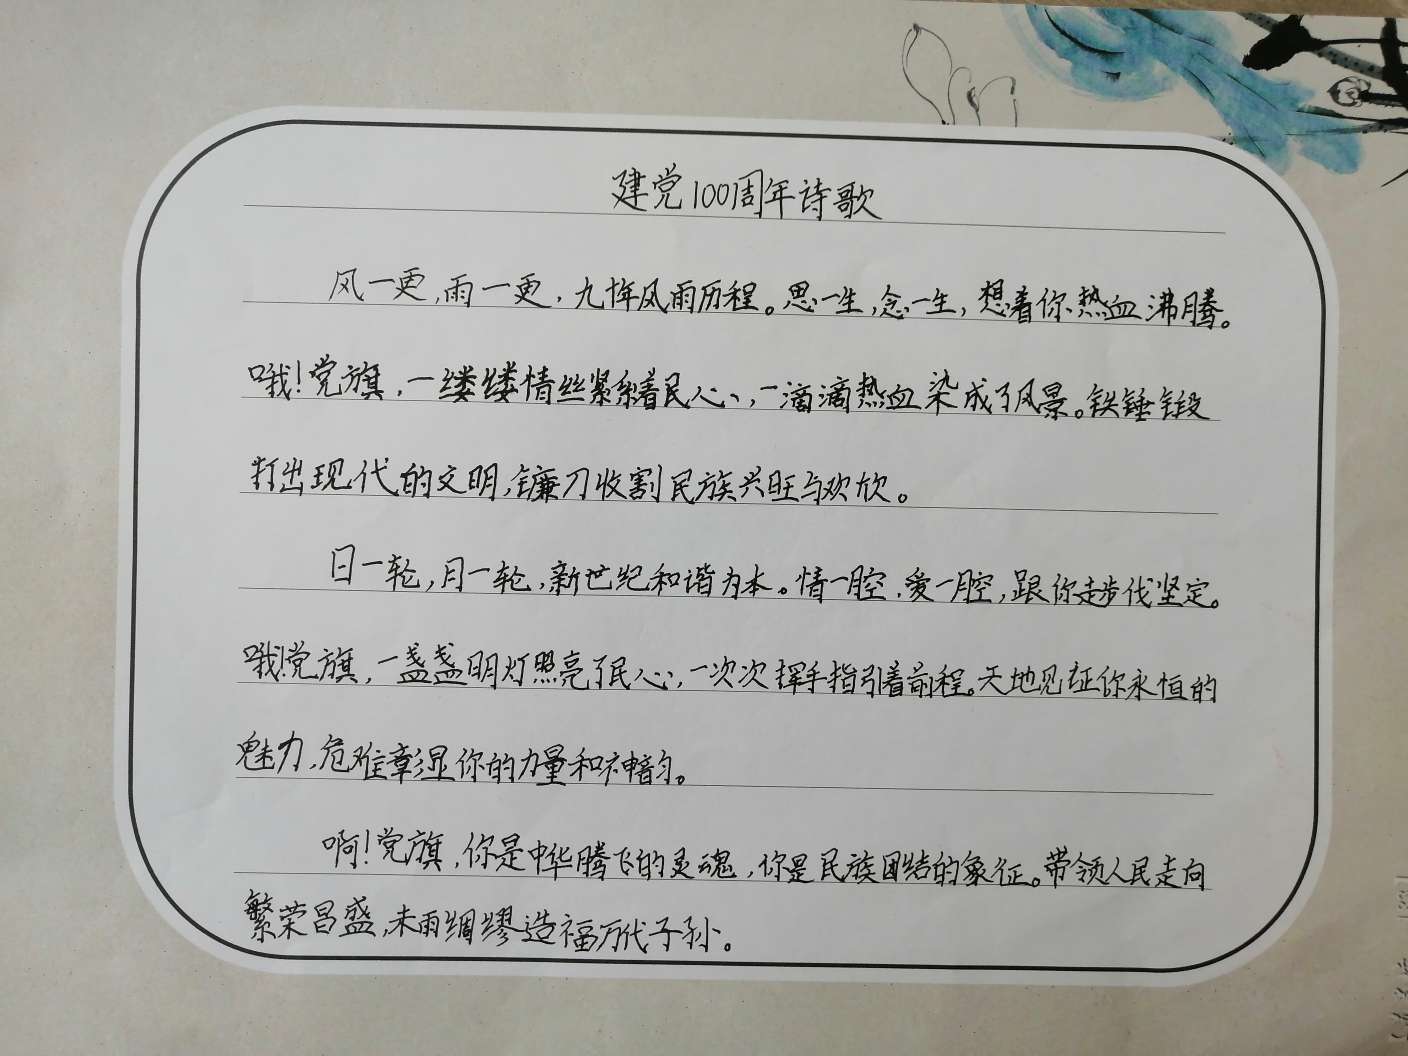 建党100周年诗歌
风一更,雨一更,九十年风雨历程。思一生,念一生,想着你热血沸腾。
哦!党旗,一缕缕情丝紧系着民心,一滴滴热血染成了风景。铁锤锻
打出现代的文明,镰刀收割民族兴旺与欢欣。
日一轮,月一轮,新世纪和谐为本。情一腔,爱一腔,跟你走步伐坚定。
哦!党旗,一盏盏明灯照亮了民心,一次次挥手指引着前程。天地见证你永恒的
魅力,危难彰显你的力量和神韵。
啊!党旗,你是中华腾飞的灵魂,你是民族团结的象征。带领人民走向
繁荣昌盛,未雨绸缪造福万代子孙。